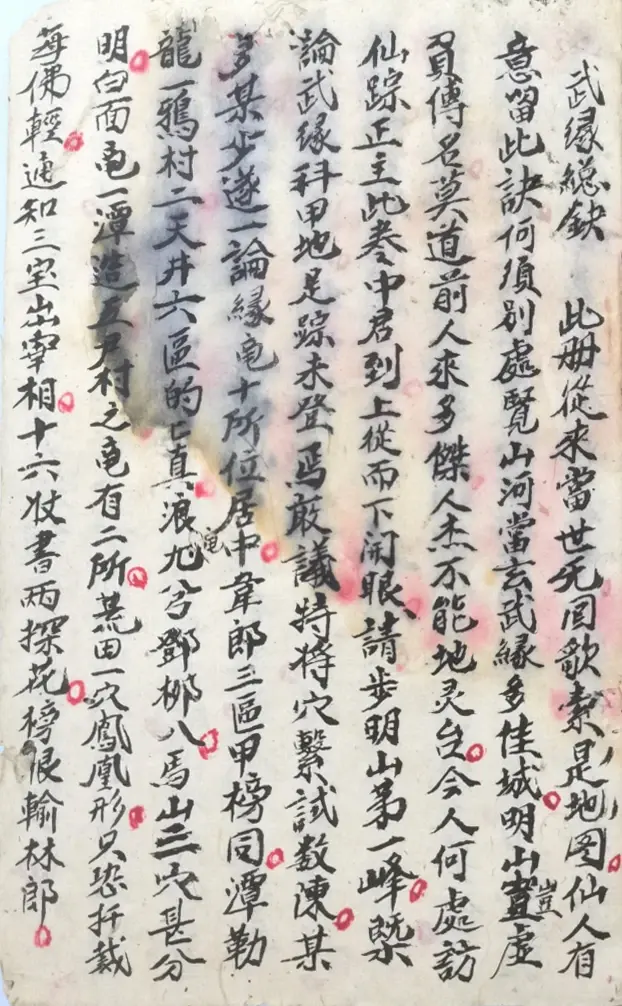 武緣總鈌 此册從來當世无回歌索是地图仙人有
意留此訣何須别處覽山河當玄武緣多佳城明山豈虛
負傳名莫道前人來多傑人杰不能地灵台今人何處訪
仙踪正主此卷中君到上從而下開眼請步明山第一峰槩
論武緣科甲地是踪未登焉敢議特將穴繫試数陳某
多某少遂一論緣黾十所位居中韋郎三區甲榜同潭勒
龍一鴉村二天井六區的亡真浪九兮鄧柳八馬山三穴甚分
明白面黾一潭造五尹村之黾有二所荒田一穴鳳凰形只恐扦裁
每佛輕通知三宝出宰相十六妆書两探花榜眼輸林郎